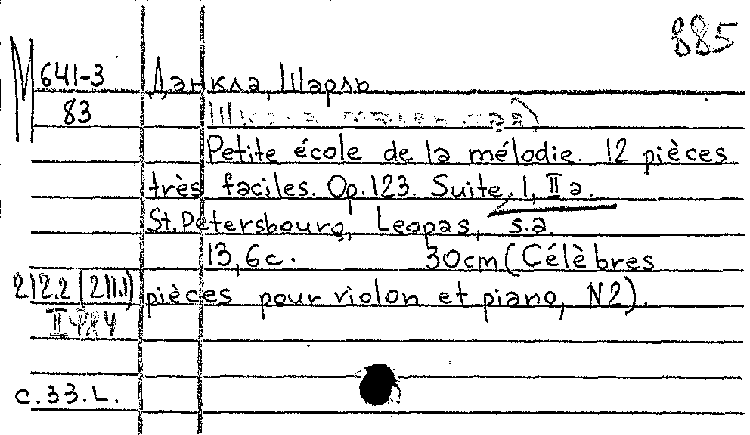 885
М 641-3
83
Данкла, Шарль
Petite école de la mélodie. 12 pièces
très faciles. Op. 123. Suite, I, II a.
St. Petersbourg, Leopas, s.a.
13, 6 c. 30cm (Célèbres
212.2 (211.1) pièces pour violon et piano, N2).
c.33.L.